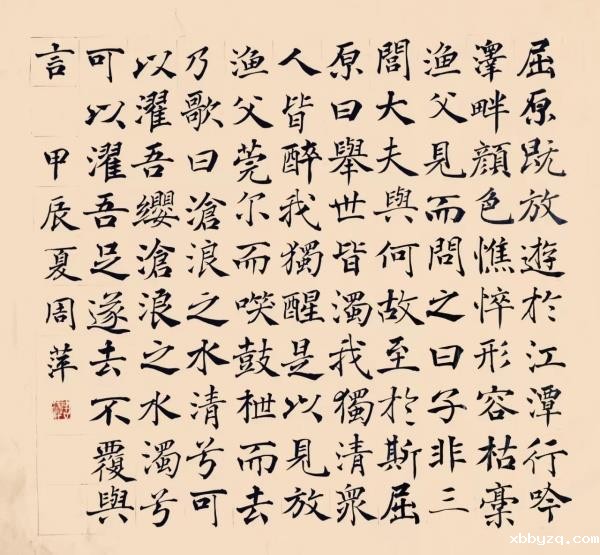 屈原既放遊於江潭行吟
澤畔顏色憔悴形容枯槀
漁父見而問之曰子非三
閭大夫與何故至於斯屈
原曰舉世皆濁我獨清眾
人皆醉我獨醒是以見放
漁父莞尔而㗛鼓枻而去
乃歌曰滄浪之水清兮可
以濯吾纓滄浪之水濁兮
可以濯吾足遂去不覆與
言 甲辰夏周萍
xbbyzq.com